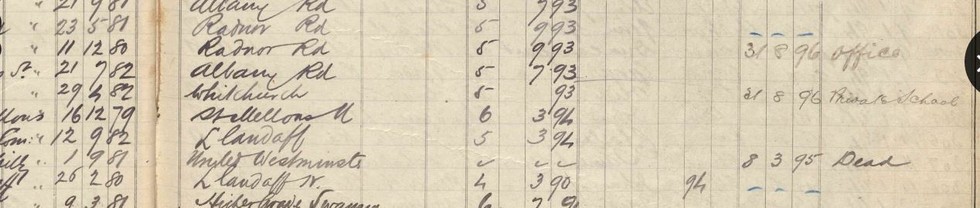 " 21 9 81 Albany Rd 5 7 93
" 23 5 81 Radnor Rd 5 9 93
" 11 12 80 Radnor Rd 5 9 93 31 8 96 office
St. " 21 7 82 Albany Rd 5 7 93
" 29 4 82 Whitchurch 5 93 31 8 96 Private School
16 12 79 St Mellons U 6 3 94
12 9 82 Llandaff 5 3 94
" 1 9 81 United Westminste 8 3 95 Dead
" 26 2 80 Llandaff N. 4 3 90 94
9 3 81 Higher Grade Swansea 6 7 91